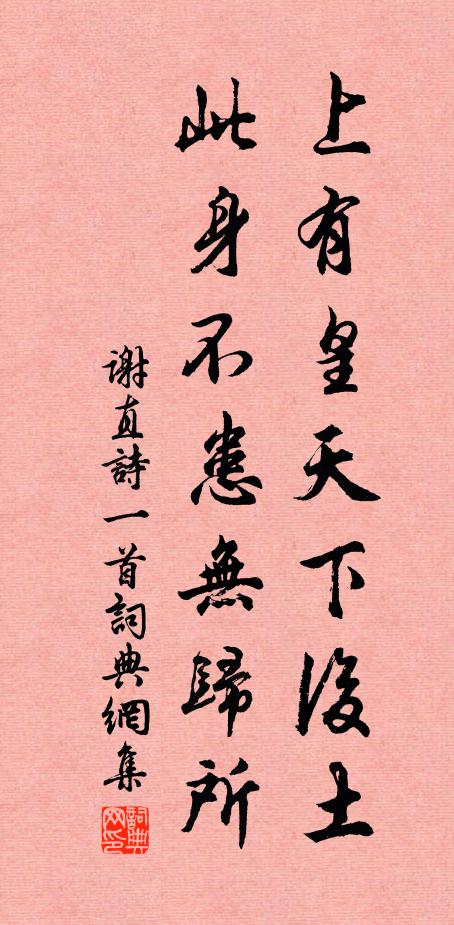 上有皇天下後土
此身不患無歸所
謝直詩一首詞典網集
詞典网印